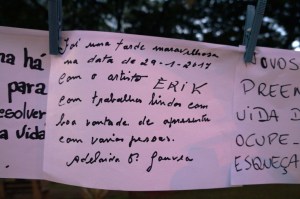 na há
para
esolver,
a vida
Foi uma tarde maravilhosa
na data de 29-1-2017
com o artista ERIK
com trabalhos lindos com
boa vontade de apresentar
com varias pessoas.
Adelaira
OVOS
PREEN
VIDA D
OCUPE-
ESQUEÇA